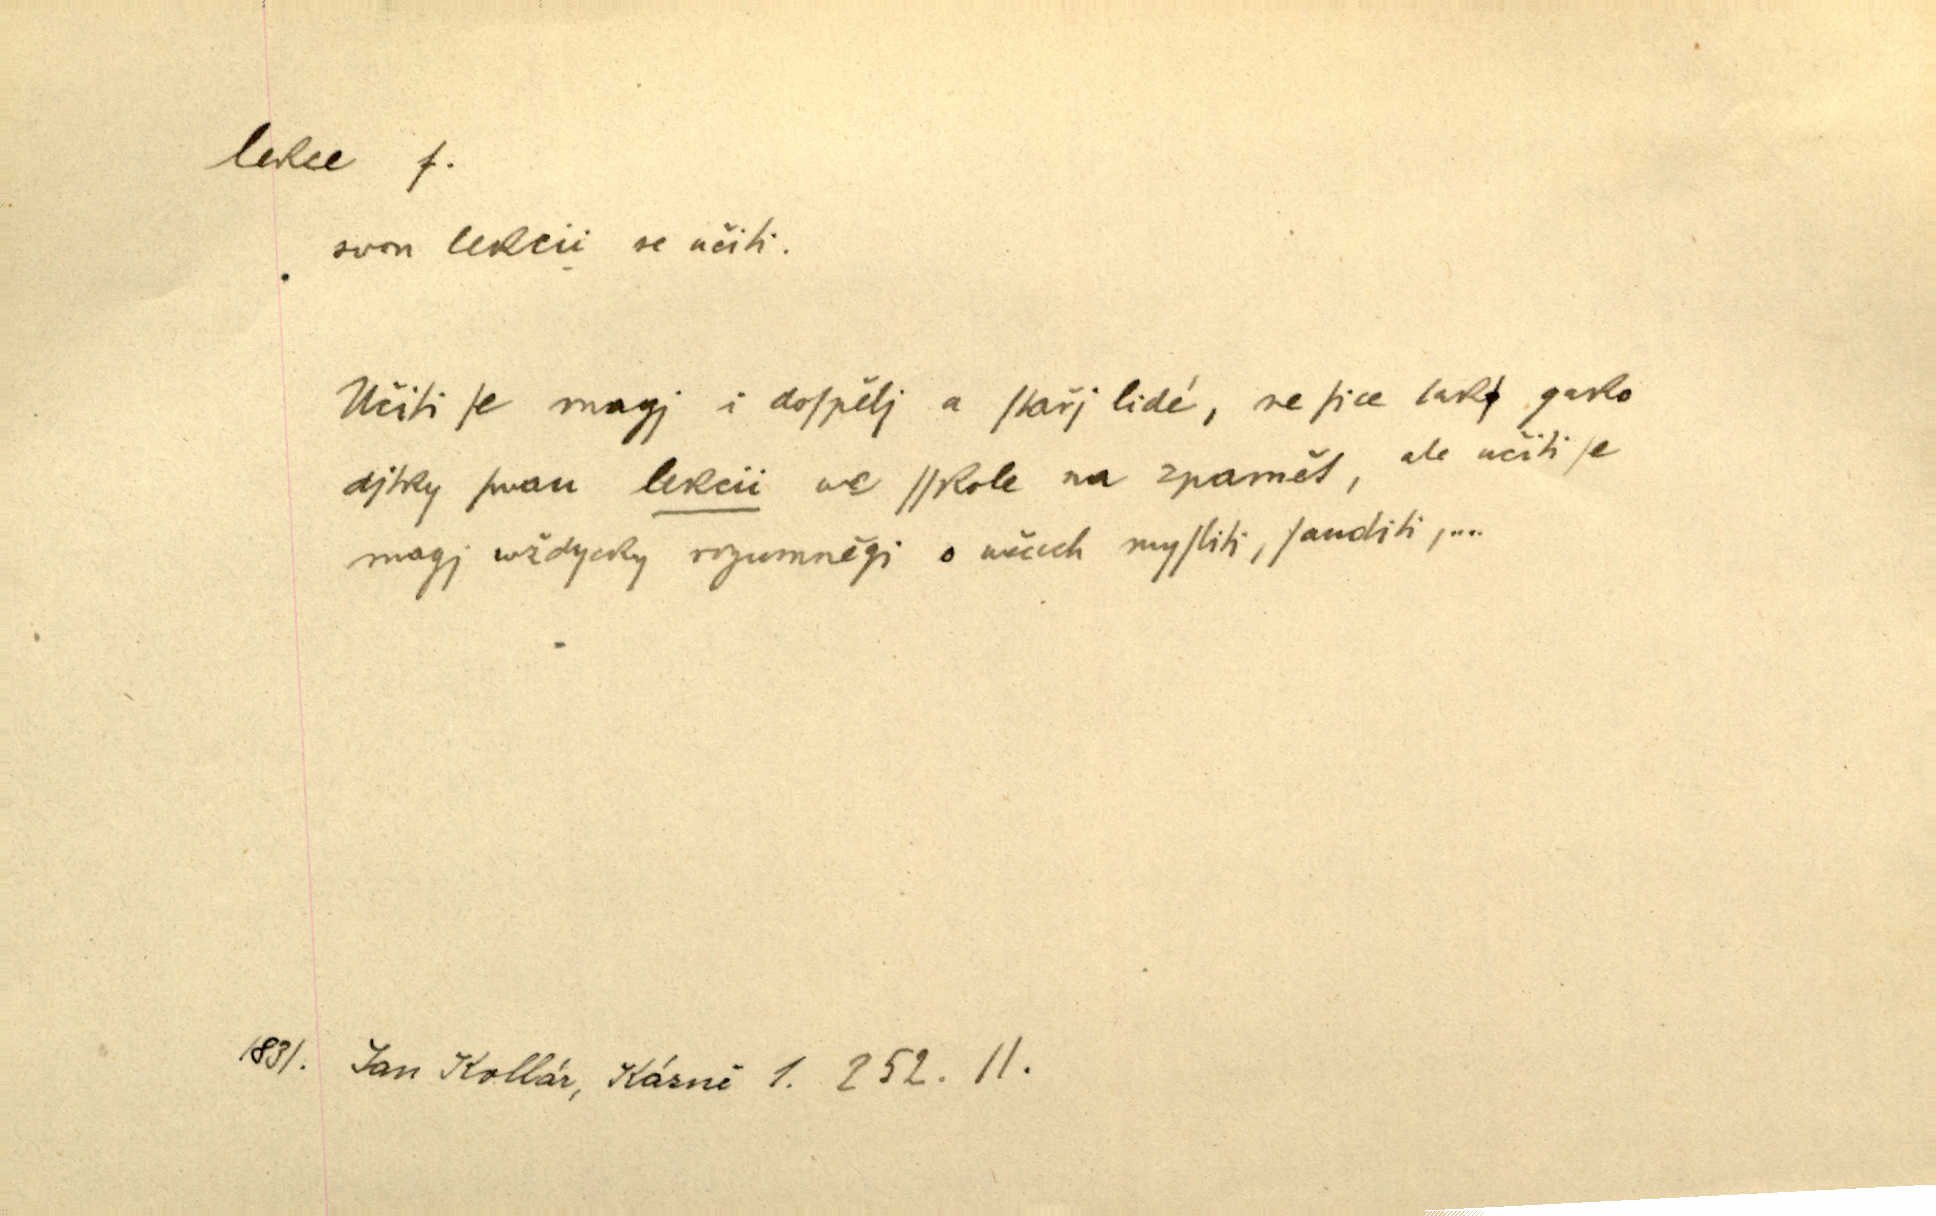 lekce f.
svou lekcii se učiti.
Učiti ſe magj i doſpělj a ſtařj lidé, ne ſice tak gako
djtky ſwau lekcii we ſſkole na zpamět, ale učiti ſe
magj wždycky rozumněgi o wěcech myſliti, ſauditi,...
1831. Jan Kollár, Kázně 1. 252. II.